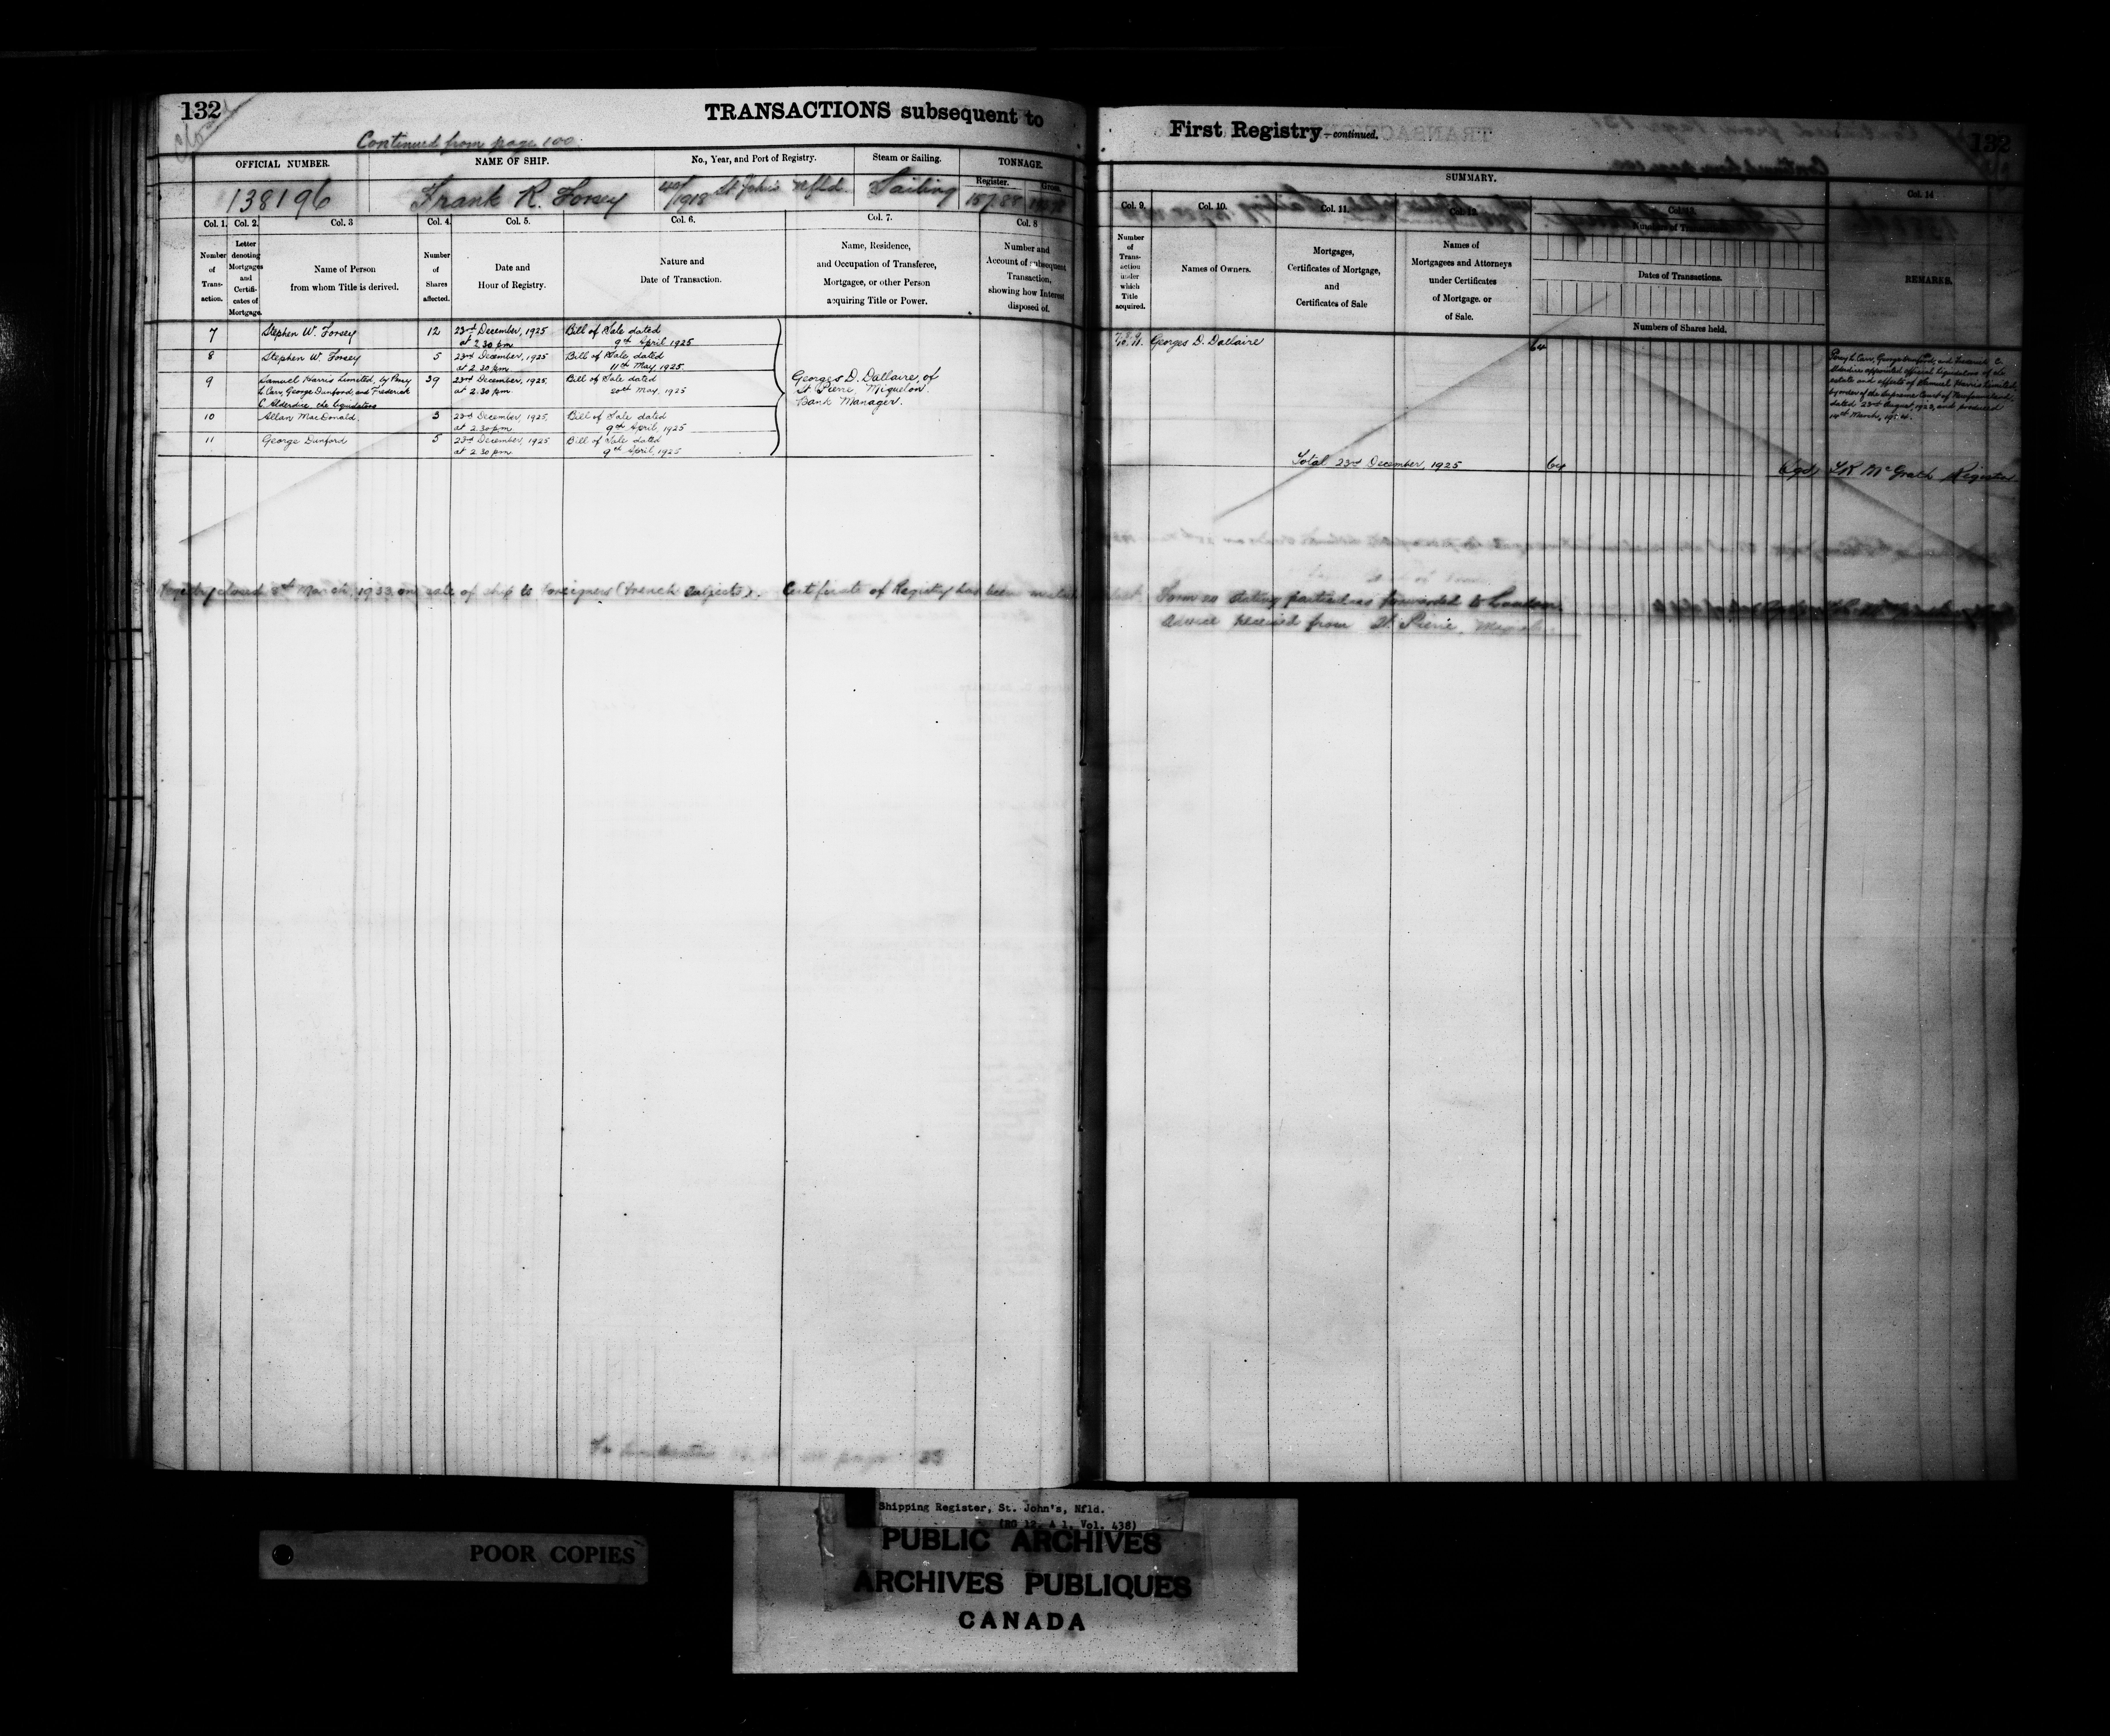 132
TRANSACTIONS subsequent to
Continued from page 100.
OFFICIAL NUMBER.
NAME OF SHIP.
No., Year, and Port of Registry.
Steam or Sailing.
TONNAGE.
Register.
Gross.
138196
Frank R. Forsey
40/1918 St John's Nfld.
Sailing
Col. 1.
Col. 2.
Col. 3
Col. 4.
Col. 5.
Col. 6.
Col. 7.
Col. 8
Number of Trans- action.
Letter denoting Mortgages and Certifi- cates of Mortgage.
Name of Person from whom Title is derived.
Number of Shares affected.
Date and Hour of Registry.
Nature and Date of Transaction.
Name, Residence, and Occupation of Transferee, Mortgagee, or other Person acquiring Title or Power.
Number and Account of subsequent Transaction, showing how Interest disposed of.
7 Stephen W. Forsey 12 23rd December, 1925 Bill of Sale dated
at 2.30 pm. 9th April 1925
8 Stephen W. Forsey 5 23rd December, 1925 Bill of Sale, dated
at 2.30 pm. 11th May 1925.
9 Samuel Harris Limited, by Percy 39 23rd December, 1925. Bill of Sale dated
L Carr, George Dunford, and Frederick at 2.30 pm. 20th May, 1925
C. Alderdice the liquidators
Georges D. Dallaire, of
St Pierre, Miquelon.
Bank Manager.
10 Allan MacDonald 3 23rd December, 1925. Bill of Sale dated
at 2.30 pm. 9th April, 1925
11 George Dunford 5 23rd December, 1925 Bill of Sale dated
at 2.30 pm. 9th April, 1925
Registry closed March, 1933, on sale of ship to Foreigners (French Subjects). Certificate of Registry has been
First Registry—continued.
132
SUMMARY.
Col. 9.
Col. 10.
Col. 11.
Col. 12.
Col. 13.
Col. 14
Number of Trans- action under which Title acquired.
Names of Owners.
Mortgages, Certificates of Mortgage, and Certificates of Sale
Names of Mortgagees and Attorneys under Certificates of Mortgage. or of Sale.
Numbers of Transactions.
Dates of Transactions.
Numbers of Shares held.
REMARKS.
7. 8. 9. 10. 11. Georges D. Dallaire 64
Percy L. Carr, George Dunford, and Frederick C.
Alderdice appointed official liquidators of the
estate and effects of Samuel Harris Limited,
by order of the Supreme Court of Newfoundland,
dated 23rd August, 1923, and produced
14th March,
Total 23rd December, 1925 64
(sgd) McGrath Registrar
Form 20 stating particulars forwarded to London.
Advice received from St. Pierre,
page 33
Shipping Register, St. John's, Nfld.
(RG 12, A 1, Vol. 438)
POOR COPIES
PUBLIC ARCHIVES
ARCHIVES PUBLIQUES
CANADA